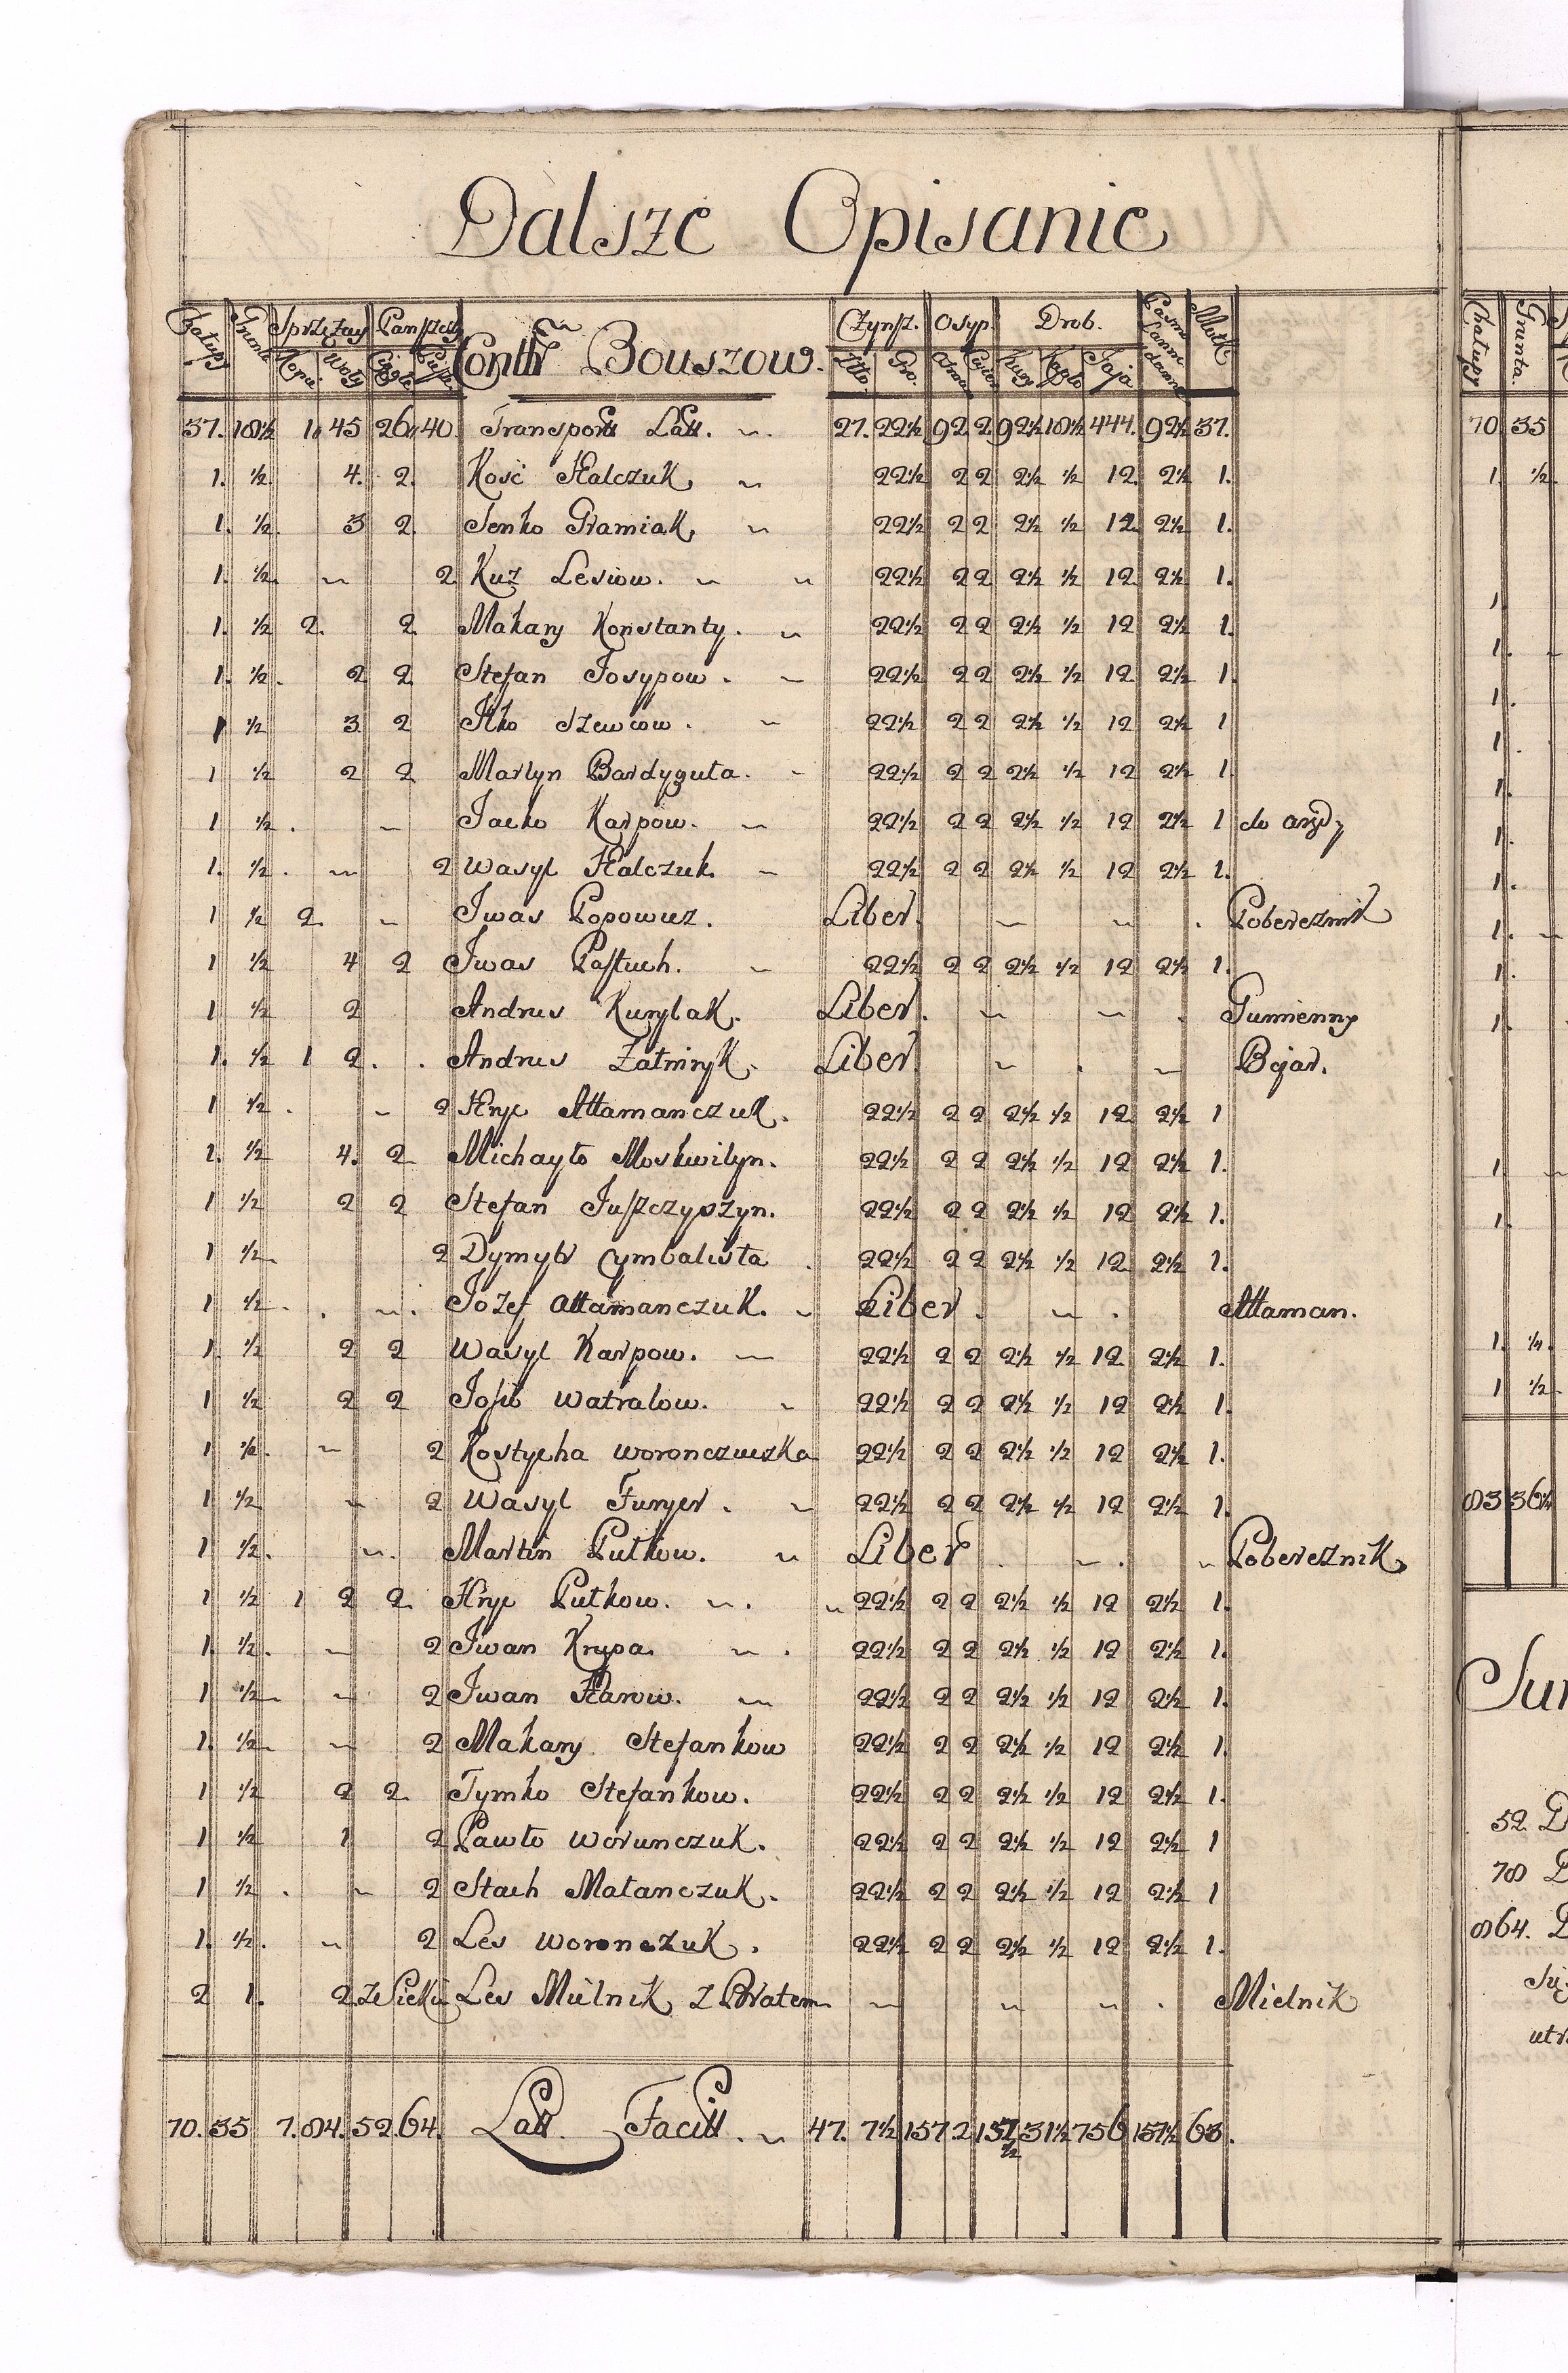 Dalsze Opisanie
Chałupy Grunta Sprzężay Panszcz. Contũ Bouszow. Czynsz. Osyp. Drob. Motk.
Koni Woły Ciągła Piesza Złło. Gro. Kury Kapło Jaja
37. 18½ 1 45 26 40 Transport Latt. 27. 22½ 92 2 92½ 18½ 444. 92½ 37.
1. ½. 4. 2. Kość Halczuk 22½ 2 2 2½ ½ 12. 2½ 1.
1. ½. 3 2. Senko Gramiak 22½ 2 2 2½ ½ 12. 2½ 1.
1. ½. 2 Kuz Lesiow. 22½ 2 2 2½ ½ 12 2½ 1.
1. ½ 2. 2. Makary Konstanty. 22½ 2 2 2½ ½ 12 2½ 1.
1. ½. 2 2 Stefan Josypow. 22½ 2 2 2½ ½ 12 2½ 1.
1 ½ 3 2 Ilko Szewciow. 22½ 2 2 2½ ½ 12 2½ 1
1 ½ 2 2 Martyn Bardyguła. 22½ 2 2 2½ ½ 12 2½ 1.
1 ½. Jacko Karpow. 22½ 2 2 2½ ½ 12 2½ 1 do
1. ½. 2 Wasyl Halczuk. 22½ 2 2 2½ ½ 12 2½ 1.
1 ½ 2. Iwas Popowicz. Liber. Pobereznik
1 ½ 4 2 Iwas Pastuch. 22½ 2 2 2½ ½ 12 2½ 1.
1 ½ 2 Andrus Kurylak. Liber. Gumienny
1. ½ 1 2. Andrus Zatwiryk. Liber Bojar.
1 ½. 2 Hryc Attamanczuk. 22½ 2 2 2½ ½ 12. 2½ 1
1. ½ 4. 2 Michayło Moskwilyn. 22½ 2 2 2½ ½ 12 2½ 1.
1 ½ 2 2 Stefan Juszczyszyn. 22½ 2 2 2½ ½ 12 2½ 1.
1 ½. 2 Dymytr Cymbalista 22½ 2 2 2½ ½ 12 2½ 1.
1 ½. Jozef Attamanczuk. Liber. Attaman.
1. ½ 2 2 Wasyl Karpow. 22½ 2 2 2½ ½ 12 2½ 1.
1 ½ 2 2 Josio Watralow. 22½ 2 2 2½ ½ 12 2½ 1.
1 ½. 2 Kostycha Woronczuczka 22½ 2 2 2½ ½ 12 2½ 1.
1 ½ 2 Wasyl Furyer. 22½ 2 2 2½ ½ 12 2½ 1.
1 ½. Martin Putkow. Liber Pobereznik
1 ½ 1 2 2. Hryc Putkow. 22½ 2 2 2½ ½ 12 2½ 1.
1. ½. 2 Iwan Krypa. 22½ 2 2 2½ ½ 12 2½ 1.
1 ½ 2 Iwan Harow. 22½ 2 2 2½ ½ 12 2½ 1.
1. ½ 2 Makary Stefankow 22½ 2 2 2½ ½ 12 2½ 1.
1 ½ 2 2. Tymko Stefankow. 22½ 2 2 2½ ½ 12 2½ 1.
1 ½ 1 2 Pawło Worunczuk. 22½ 2 2 2½ ½ 12 2½ 1
1 ½. 2 Stach Matanczuk. 22½ 2 2 2½ ½ 12 2½ 1
1. ½. 2 Les Woronczuk. 22½ 2 2 2½ ½ 12 2½ 1.
2 1. 2 Les Mielnik z Bratem Mielnik
70. 35 7. 84. 52 64. Latt. Facitt. 47. 7½ 157 2 157½ 31½ 756 157½ 63.
Chałupy Grunta.
70 35
1. ½
1. ¼.
1 ½.
83 36¼
52. D
78
864.